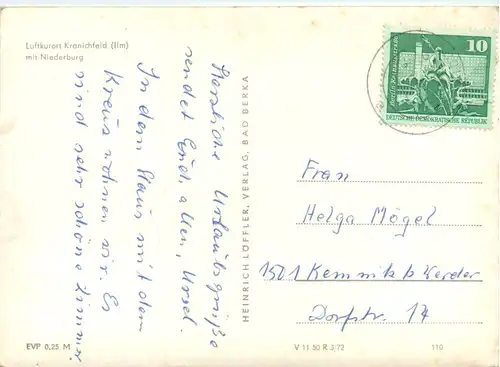 Luftkurort Kranichfeld (Ilm)
mit Niederburg
Herzliche Urlaubsgrüße
sendet Euch allen, Ursel.
In dem Haus mit dem
Kreus wohnen wir. Es
sind sehr schöne Zimmer
EVP 0,25 M
HEINRICH LÖFFLER, VERLAG, BAD BERKA
10
DEUTSCHE DEMOKRATISCHE REPUBLIK
Frau
Helga Mögel
1501 Kemnitz b Werder
Dorfstr. 14
V 11 50 R 3/72
110